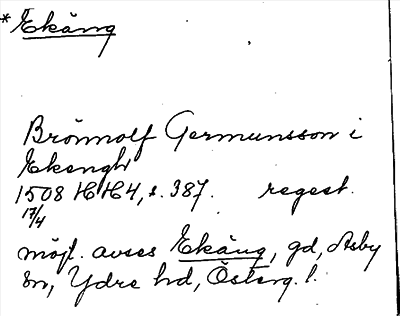 *Ekäng
Brönnolf Germunsson i
Ekengh
1508 HH4, s. 387. regest.
17/4
möjl. avses Ekäng, gd, Asby
sn, Ydre hd, Österg. l.